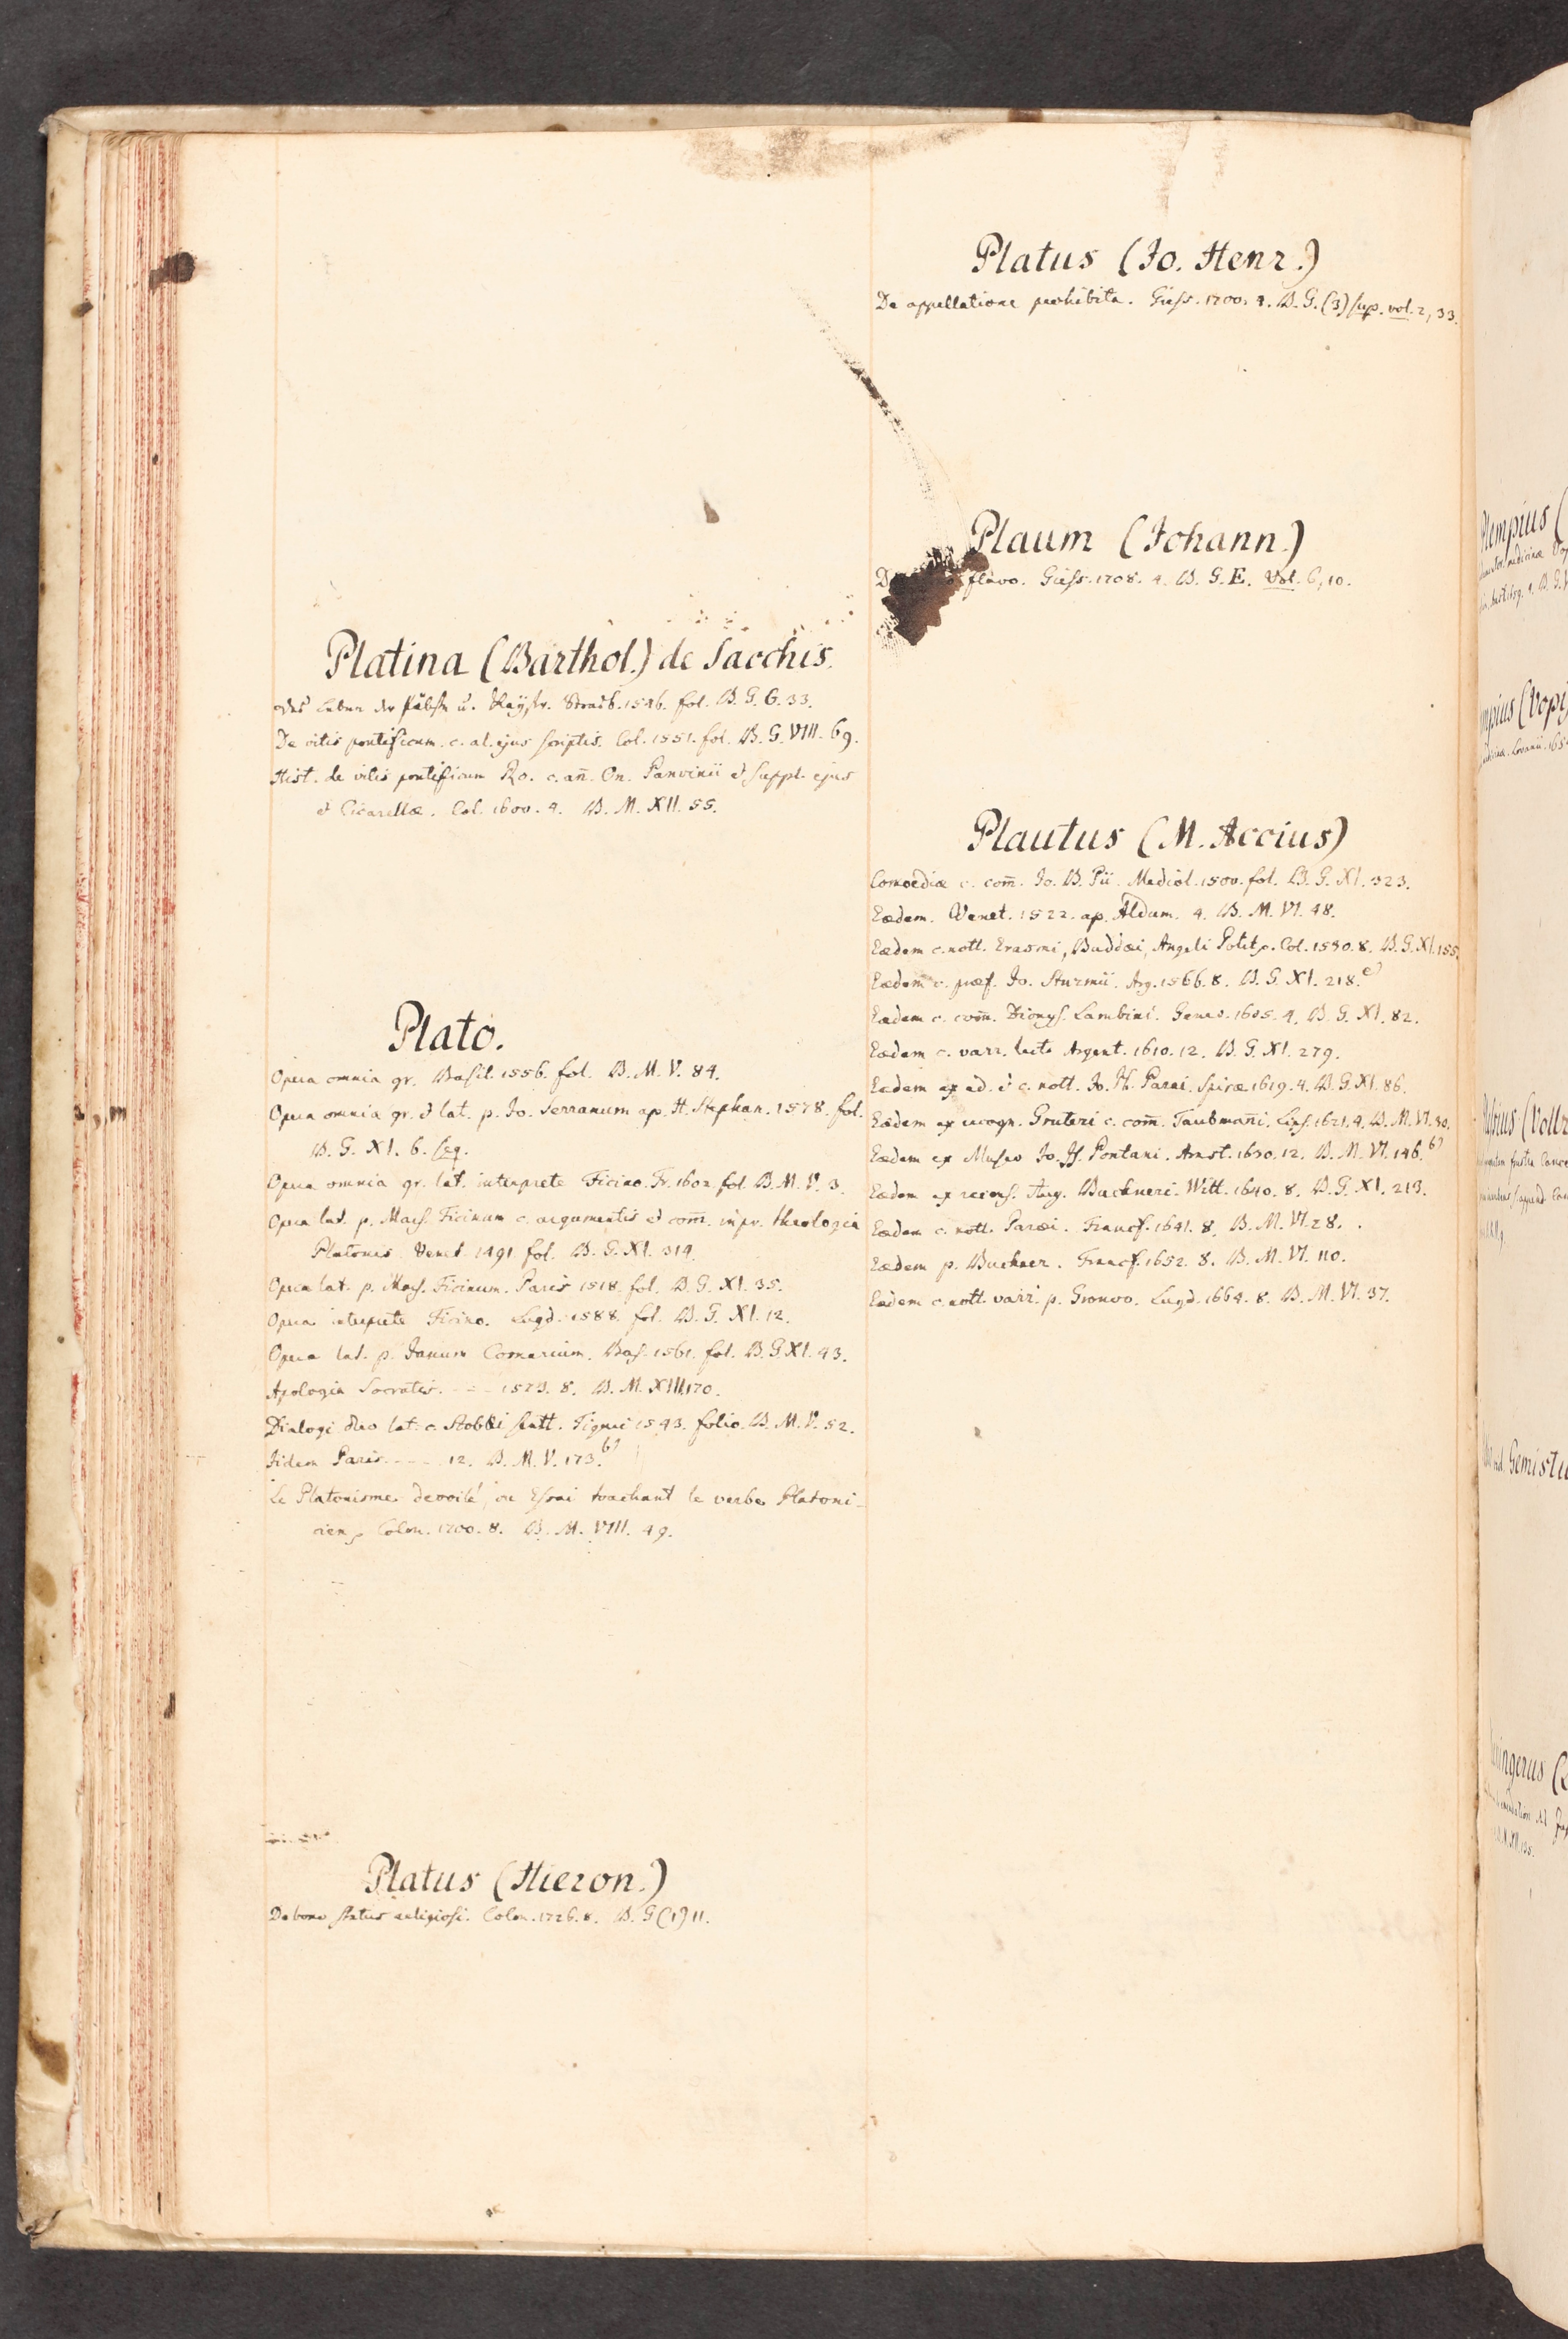 Platina (Barthol.) de Sacchis.
Das Leben der Päbste u. Kayser. Strasb. 1546. fol. B. G. G. 33.
De vitis pontificum. c. al. ejus scriptis. Col. 1551. fol. B. G. VIII. 69.
Hist. de vitis pontificum Ro. c. an̄. On. Panvinii & suppl. ejus
& Cicarellæ. Col. 1600. 4. B. M. XII. 55.
Plato.
Opera omnia gr. Basil. 1556. fol. B. M. V. 84.
Opera omnia gr. & lat. p. Jo. Serranum ap. H. Stephan. 1578. fol.
B. G. XI. 6. seq.
Opera omnia gr. lat. interprete Ficino. Fr. 1602 fol. B. M. V. 3.
Opera lat. p. Mars. Ficinum c. argumentis & com̄. in pr. theologia
Platonis. Venet. 1491. fol. B. G. XI. 314.
Opera lat. p. Mars. Ficinum. Paris 1518. fol. B. G. XI. 35.
Opera interprete Ficino. Lugd. 1588. fol. B. G. XI. 12.
Opera lat. p. Janum Cornarium. Bas. 1561. fol. B. G. XI. 43.
Apologia Socratis. - - - 1573. 8. B. M. XIII. 170.
Dialogi duo lat. c. Stobæi sentt. Tiguri 1543. folio. B. M. V. 52.
Iidem Paris. - - - 12. B. M. V. 173. b)
Le Platonisme devoilé, ou Essai touchant le verbe Platoni-
cien. Colon. 1700. 8. B. M. VIII. 49.
Platus (Hieron.)
De bono status religiosi. Colon. 1726. 8. B. G (1) 11.
Platus (Jo. Henr.)
De appellatione prohibita. Giess. 1700. 4. B. G. (3) sup. vol. 2, 33.
Plaum (Johann.)
flavo. Giess. 1708. 4. B. G. E. Vol. 6, 10.
Plautus (M. Accius)
Comoediæ c. com̄. Jo. B. Pii. Mediol. 1500. fol. B. G. XI. 323.
Eædem. Venet. 1522. ap. Aldum. 4. B. M. VI. 48.
Eædem c. nott. Erasmi, Buddæi, Angeli Polit. Col. 1530. 8. B. G. XI. 155.
Eædem c. præf. Jo. Sturmii. Arg. 1566. 8. B. G. XI. 218. c)
Eædem c. com̄. Dionys. Lambini. Genev. 1605. 4. B. G. XI. 82.
Eædem c. varr. lectt. Argent. 1610. 12. B. G. XI. 279.
Eædem ex ed. & c. nott. Jo. Ph. Parei. Spiræ 1619. 4. B. G. XI. 86.
Eædem ex recogn. Gruteri c. com̄. Taubman̄i. Lips. 1621. 4. B. M. VI. 30.
Eædem ex Museo Jo. Is. Pontani. Amst. 1630. 12. B. M. VI. 146. b)
Eædem ex recens. Aug. Buchneri. Witt. 1640. 8. B. G. XI. 213.
Eædem c. nott. Paræi. Francf. 1641. 8. B. M. VI. 28.
Eædem p. Buchner. Francf. 1652. 8. B. M. VI. 110.
Eædem c. nott. varr. p. Gronvo. Lugd. 1664. 8. B. M. VI. 37.